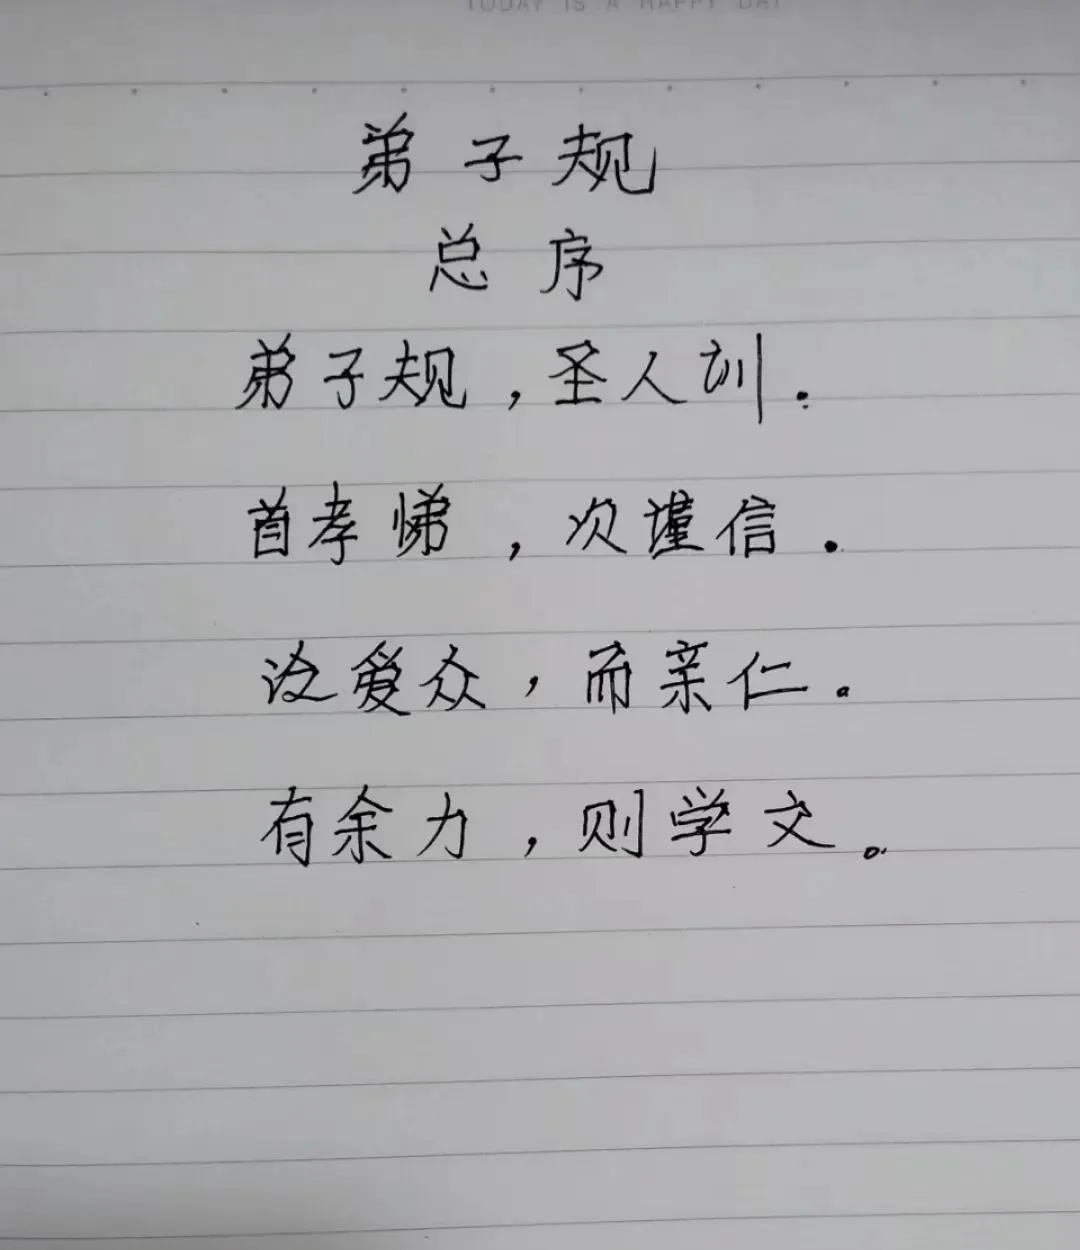 TODAY IS A HAPPY DAY
弟子规
总序
弟子规，圣人训．
首孝悌，次谨信．
泛爱众，而亲仁。
有余力，则学文。